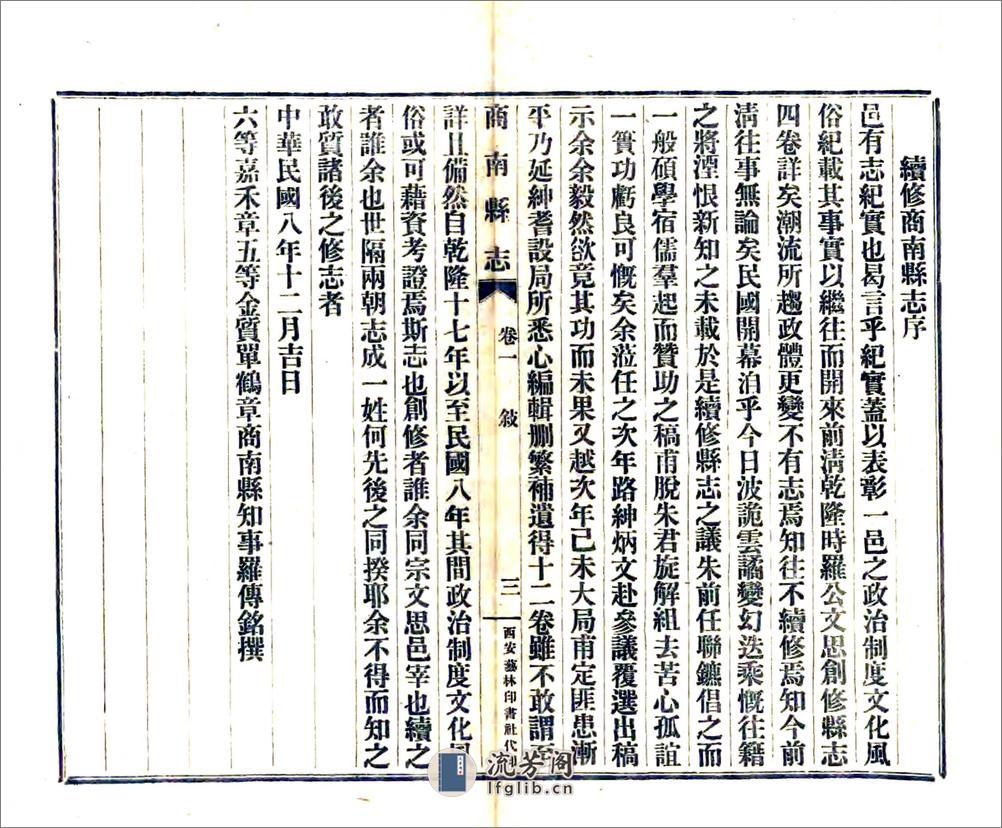 續修商南縣志序
邑有志紀實也曷言乎紀實蓋以表彰一邑之政治制度文化風
俗紀載其事實以繼往而開來前淸乾隆時羅公文思創修縣志
四卷詳矣潮流所趨政體更變不有志焉知往不續修焉知今前
淸往事無論矣民國開幕洎乎今日波詭雲譎變幻迭乘慨往籍
之將湮恨新知之未載於是續修縣志之議朱前任聯鑣倡之而
一般碩學宿儒羣起而贊助之稿甫脫朱君旋解組去苦心孤誼
一簣功虧良可慨矣余蒞任之次年路紳炳文赴參議覆選出稿
示余余毅然欲竟其功而未果又越次年己未大局甫定匪患漸
平乃延紳耆設局所悉心編輯刪繁補遺得十二卷雖不敢謂至
商南縣志
卷一 敍
三
西安藝林印書社代印
詳且備然自乾隆十七年以至民國八年其間政治制度文化風
俗或可藉資考證焉斯志也創修者誰余同宗文思邑宰也續之
者誰余也世隔兩朝志成一姓何先後之同揆耶余不得而知之
敢質諸後之修志者
中華民國八年十二月吉日
六等嘉禾章五等金質單鶴章商南縣知事羅傳銘撰
流芳阁
lfglib.cn